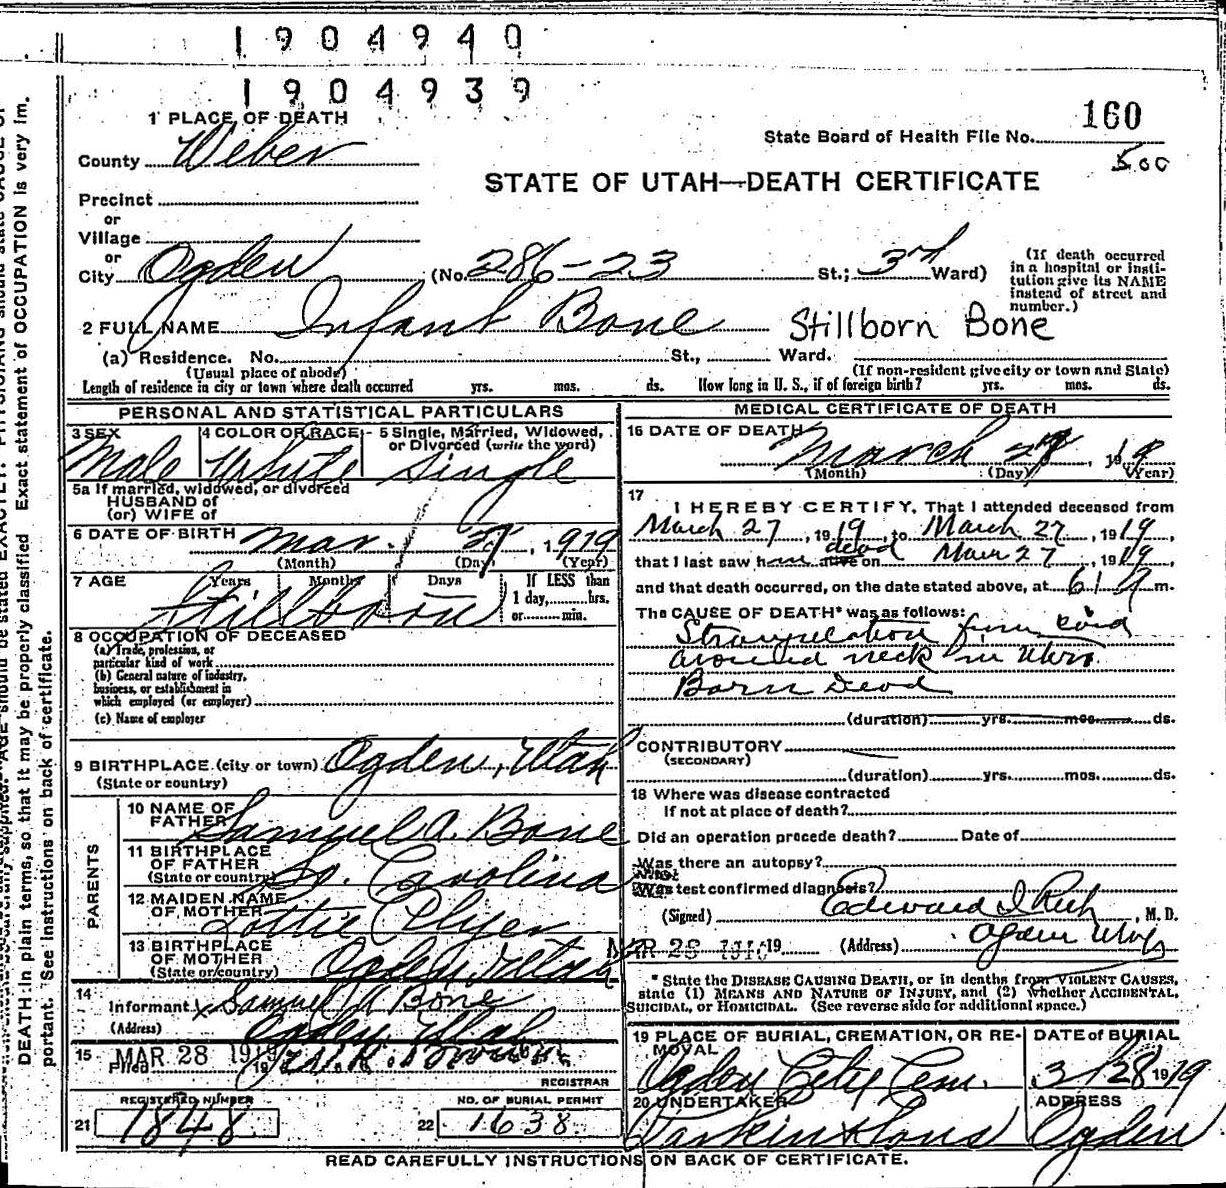 1904940
1904939
1 PLACE OF DEATH
160
State Board of Health File No.
County Weber
5.00
STATE OF UTAH—DEATH CERTIFICATE
Precinct
or
Village
or
City Ogden (No. 286-23 St.; 3rd Ward)
(If death occurred in a hospital or insti-
tution give its NAME
instead of street and
number.)
2 FULL NAME Infant Bone Stillborn Bone
(a) Residence. No. St., Ward.
(Usual place of abode) (If non-resident give city or town and State)
Length of residence in city or town where death occurred yrs. mos. ds. How long in U. S., if of foreign birth? yrs. mos. ds.
PERSONAL AND STATISTICAL PARTICULARS
3 SEX 4 COLOR OR RACE 5 Single, Married, Widowed,
or Divorced (write the word)
Male White Single
5a If married, widowed, or divorced
HUSBAND of
(or) WIFE of
6 DATE OF BIRTH Mar. 27, 1919
(Month) (Day) (Year)
7 AGE Years Months Days If LESS than
1 day, hrs.
or min.
Stillborn
8 OCCUPATION OF DECEASED
(a) Trade, profession, or
particular kind of work
(b) General nature of industry,
business, or establishment in
which employed (or employer)
(c) Name of employer
9 BIRTHPLACE (city or town) Ogden, Utah
(State or country)
PARENTS
10 NAME OF
FATHER Samuel A. Bone
11 BIRTHPLACE
OF FATHER
(State or country) So. Carolina
12 MAIDEN NAME
OF MOTHER Lottie
13 BIRTHPLACE
OF MOTHER
(State or country) Ogden, Utah
14
Informant x Samuel A Bone
(Address) Ogden Utah
15 Filed MAR 28 1919 19
REGISTRAR
REGISTERED NUMBER
21 1848
NO. OF BURIAL PERMIT
22 1638
MEDICAL CERTIFICATE OF DEATH
16 DATE OF DEATH
March 27, 1919
(Month) (Day) (Year)
17 I HEREBY CERTIFY, That I attended deceased from
March 27, 1919, to March 27, 1919,
that I last saw him alive dead on Mar 27, 1919,
and that death occurred, on the date stated above, at 6 m.
The CAUSE OF DEATH* was as follows:
Strangulation from cord
around neck in utero.
Born Dead
(duration) yrs. mos. ds.
CONTRIBUTORY
(SECONDARY)
(duration) yrs. mos. ds.
18 Where was disease contracted
If not at place of death?
Did an operation precede death? Date of
Was there an autopsy?
What test confirmed diagnosis?
(Signed) Edward I Rich, M. D.
MAR 28 1919 19 (Address) Ogden Utah
*State the DISEASE CAUSING DEATH, or in deaths from VIOLENT CAUSES,
state (1) MEANS AND NATURE OF INJURY, and (2) whether ACCIDENTAL,
SUICIDAL, or HOMICIDAL. (See reverse side for additional space.)
19 PLACE OF BURIAL, CREMATION, OR RE-
MOVAL
Ogden City Cem.
DATE OF BURIAL
3/28 1919
20 UNDERTAKER
Larkin & Sons
ADDRESS
Ogden
READ CAREFULLY INSTRUCTIONS ON BACK OF CERTIFICATE.
Exact statement of OCCUPATION is very im.
DEATH in plain terms, so that it may be properly classified
portant. See instructions on back of certificate.